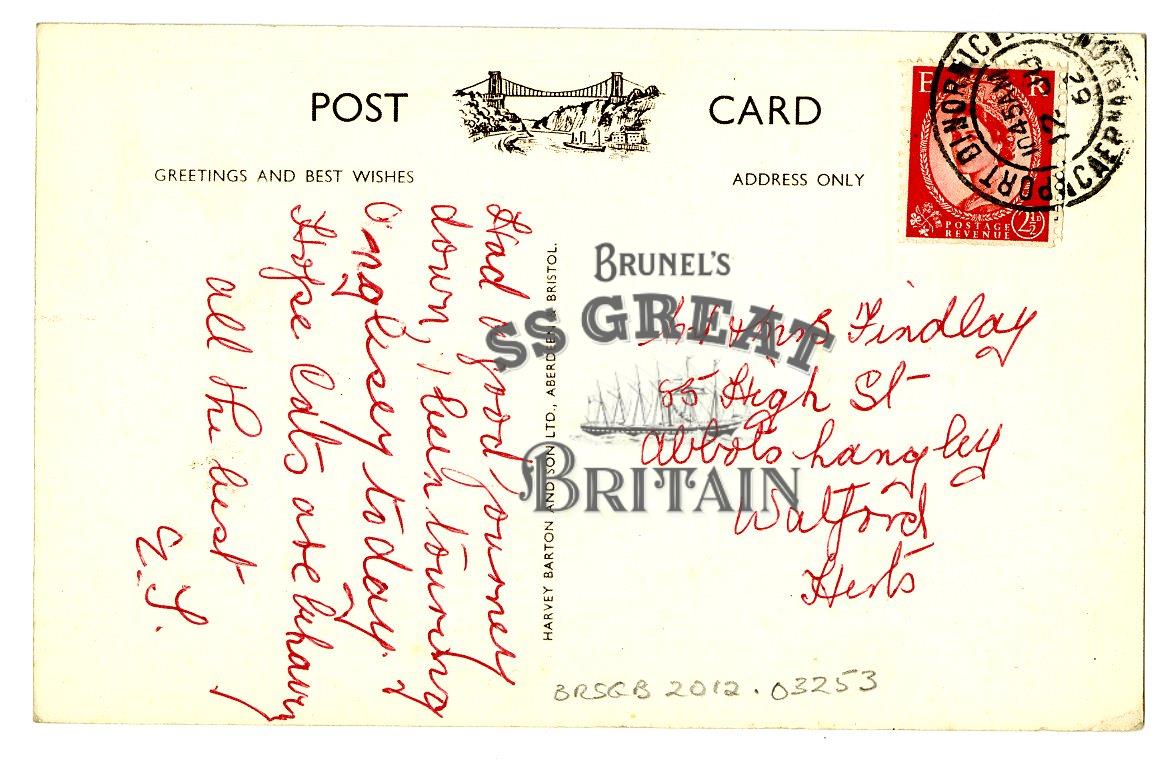 POST CARD
GREETINGS AND BEST WISHES
ADDRESS ONLY
E R
POSTAGE
REVENUE
2½D
PORT DINORWIC
CAERNARVON
10 45AM
12
29
Had a good journey
down, been touring
Anglesey today.
Hope Cats are behaving
all the best
HARVEY BARTON AND SON LTD., ABERDEEN & BRISTOL.
BRUNEL'S
SS GREAT
BRITAIN
Findlay
65 High St
Abbots Langley
Watford
Herts
BRSGB 2012.03253